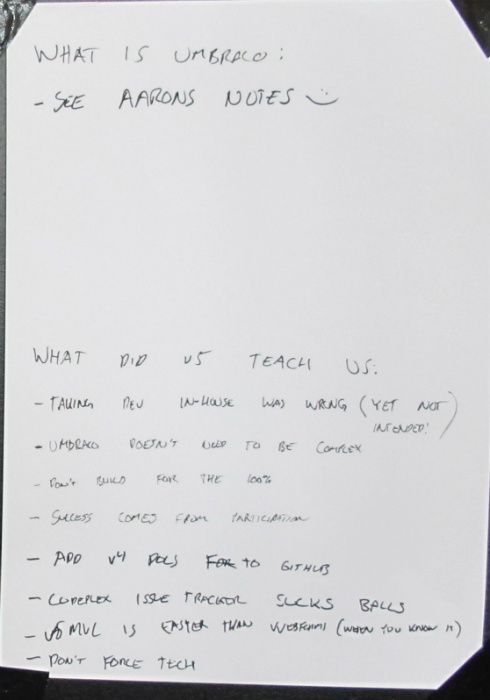 WHAT IS UMBRACO:
- SEE AARONS NOTES :)
WHAT DID V5 TEACH US:
- TAKING DEV IN-HOUSE WAS WRONG (YET NOT
INTENDED!)
- UMBRACO DOESN'T NEED TO BE COMPLEX
- DON'T BUILD FOR THE 100%
- SUCCESS COMES FROM PARTICIPATION
- ADD V4 DOCS FOR TO GITHUB
- COMPLEX ISSUE TRACKER SUCKS BALLS
- MVC IS EASIER THAN WEBFORMS (WHEN YOU KNOW IT)
- DON'T FORCE TECH